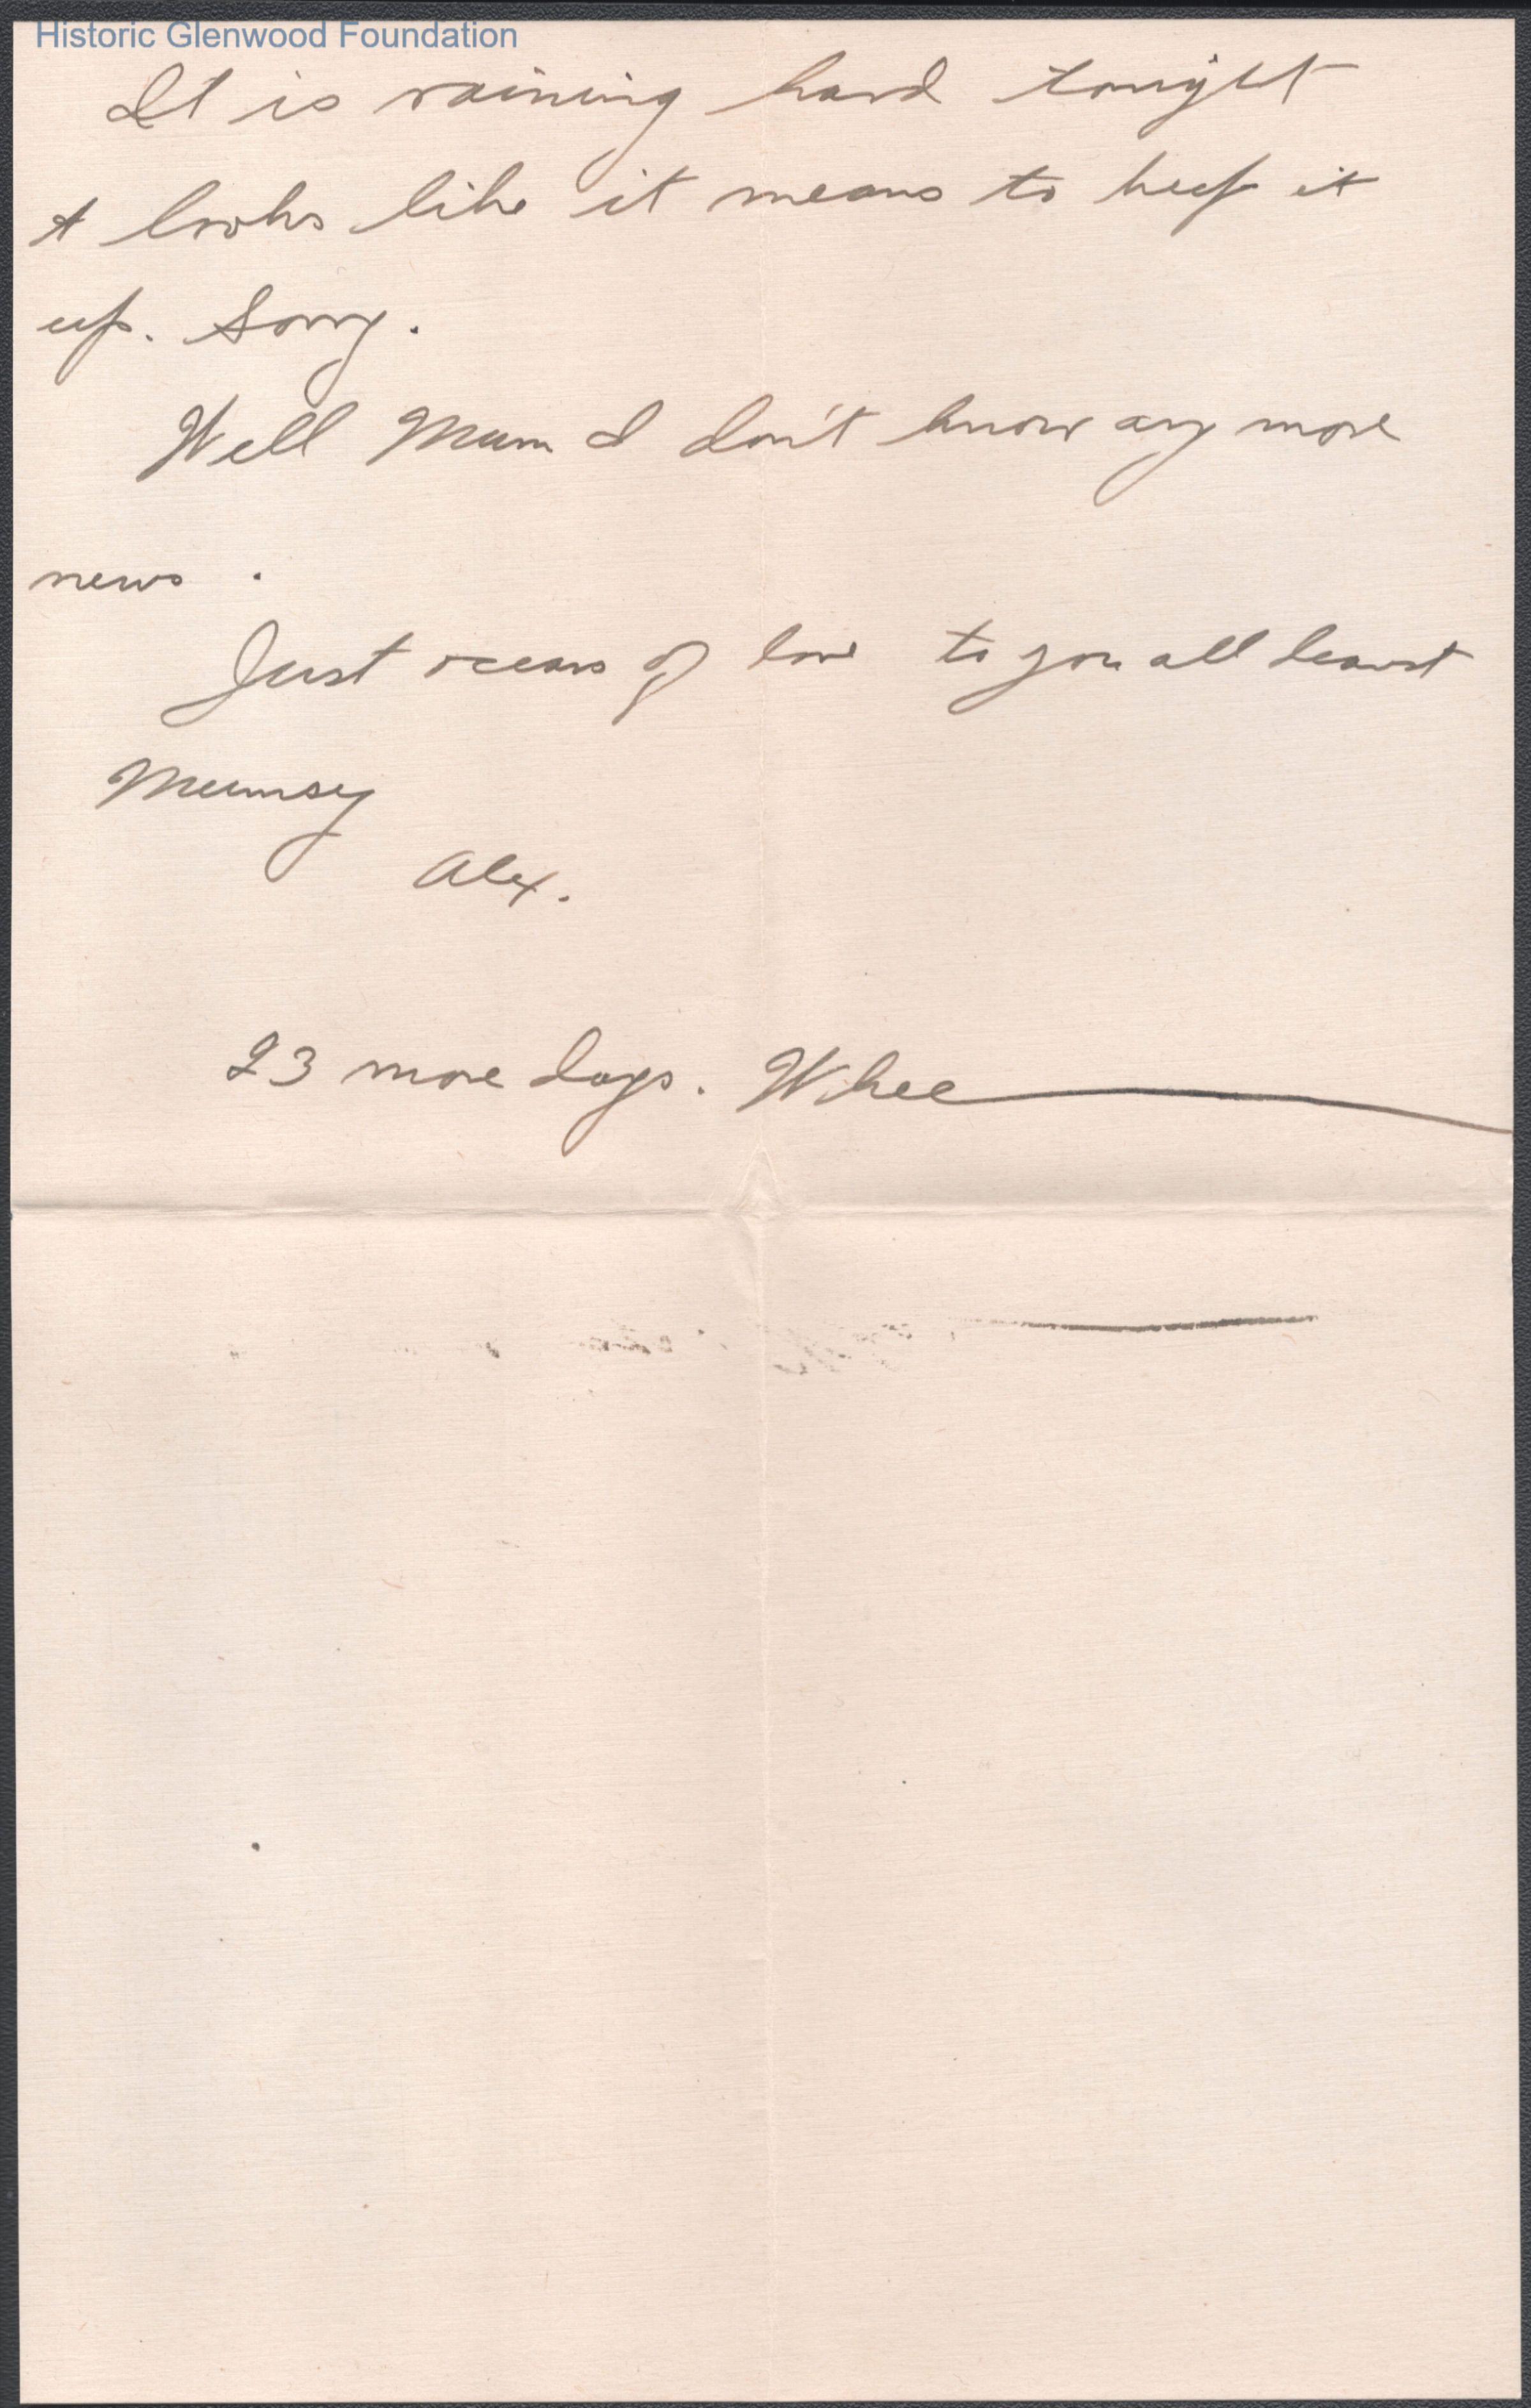 Historic Glenwood Foundation
It is raining hard tonight
& looks like it means to keep it
up. Sorry.
Well Mum I don't know any more
news.
Just oceans of love to you all dearest
Mumsey
Alex.
23 more days. Whee